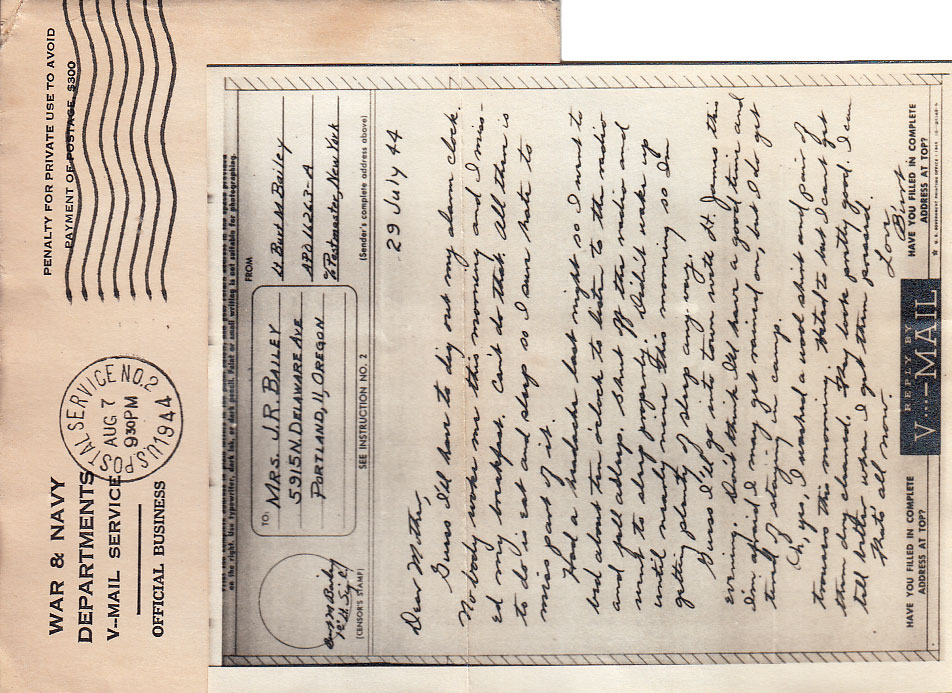 WAR & NAVY
DEPARTMENTS
V-MAIL SERVICE
OFFICIAL BUSINESS
U.S. POSTAL SERVICE NO. 2
AUG 7
930PM
1944
PENALTY FOR PRIVATE USE TO AVOID
PAYMENT OF POSTAGE, $300
on the right. Use typewriter, dark ink, or dark pencil. Faint or small writing is not suitable for photographing.
(CENSOR'S STAMP)
TO:
MRS. J.R. BAILEY
5915 N. DELAWARE AVE
PORTLAND, 11, OREGON
SEE INSTRUCTION NO. 2
FROM
Lt Bud M Bailey
APO 16267-A
% Postmaster, New York
(Sender's complete address above)
29 July 44
Dear Mother,
Guess I'll have to dig out my alarm clock.
Nobody woke me this morning and I miss-
ed my breakfast. Can't do that. All there is
to do is eat and sleep so I sure hate to
miss part of it.
Had a headache last night so I went to
bed about ten o'clock to listen to the radio
and fell asleep. Shut off the radio and
went to sleep properly. Didn't wake up
until nearly nine this morning so I'm
getting plenty of sleep any way.
Guess I'll go into town with Lt. James this
evening. Don't think I'll have a good time and
I'm afraid I may get rained on, but I do get
tired of staying in camp.
Oh, yes, I washed a wool shirt and pair of
trousers this morning. Hated to but I can't get
them dry cleaned. They look pretty good. I can
tell better when I get them pressed.
That's all now.
Love
HAVE YOU FILLED IN COMPLETE
ADDRESS AT TOP?
REPLY BY
V...-MAIL
HAVE YOU FILLED IN COMPLETE
ADDRESS AT TOP?